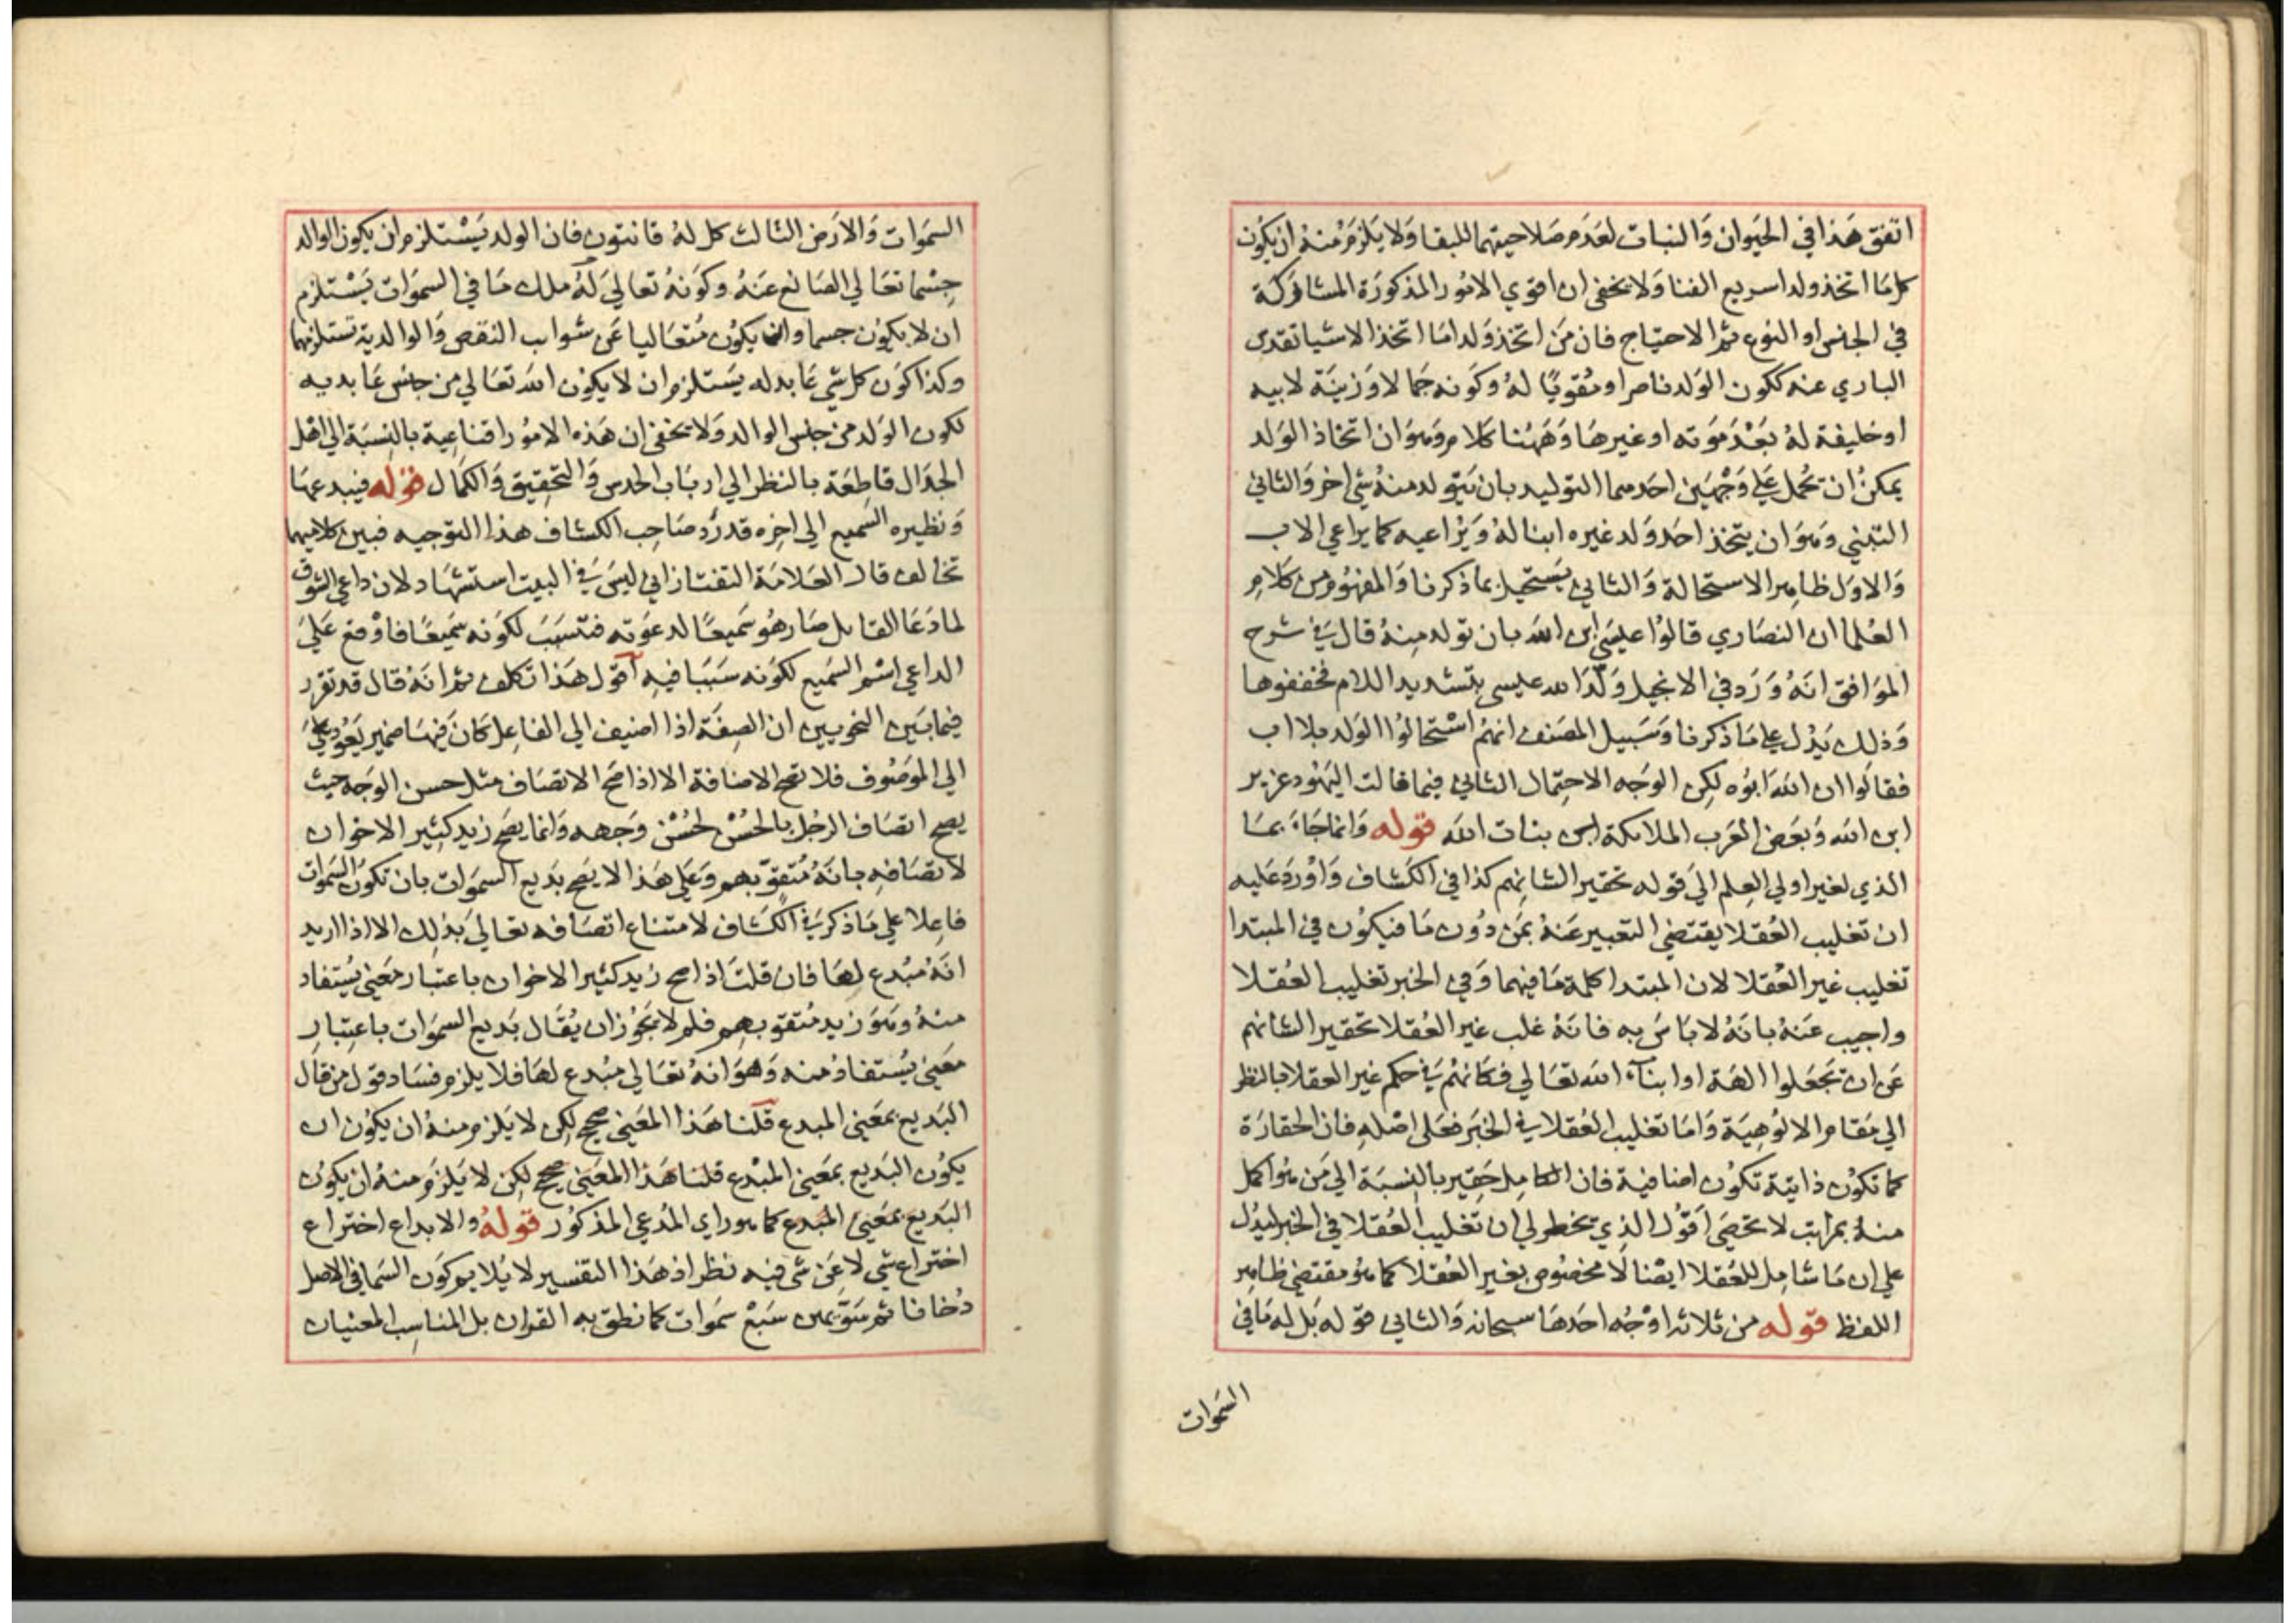 اتفق هَذا في الحَيوان وَالنبات لعَدَم صَلاحيتهما للبقا وَلا يَلزمُ منهُ ان يكوُن
كل مَا اتخذ ولدا سريع الفنا وَلا يخفى ان اقوي الامُور المذكورَة المشاركة
في الجنس او النوع ثم الاحتياج فان مَن اتخذ وَلدا امَا اتخذ الاشيا تقدس
الباري عنه ككون الوَلد ناصرا ومُقويًا لهُ وكوَنه جَمالا وَزينَة لابيه
او خليفة لهُ بَعْدَ مَوَته او غيرهَا وَهَهُنا كلام وَهوَ ان اتخاذ الوَلد
يمكنُ ان تحمل على وَجْهيَن احَدهما التوليد بان يَتولد منهُ شي اخر وَالثاني
التبني وَهوَ ان يتخذ احَد وَلد غيره ابنا لهُ وَيرُاعيه كما يراعي الاب
وَالاوَل ظاهِر الاستحالة وَالثاني يسَتحيل بما ذكرنا وَالمفهُوم من كلَامِ
العُلما ان النصَاري قالوُا عيسَى ابن الله بان تولد مِنهُ قال في شرح
الموَافق انهُ وَرَد في الانجيل وَلَّدَ الله عليسى بتشديد اللام فخففوها
وَذلك يَدُل على مَا ذكرنا وَسَبيل المصَنف انهُم اسْتحالوُا الوَلد بلا اب
فقالوُا ان اللهَ ابوُه لكِن الوَجه الاحتِمال الثاني فيما قالت اليَهود عزير
ابن الله وَبعَض العَرَب الملايكة ابن بنات اللهَ قوله وَانما جَاءَ بمَا
الذي لغير اولي العِلم الىَ قوله تحقيرا لشانِهم كذا في الكَشاف وَاوْرِدَ عَليه
ان تغليب العُقلا يقتضي التعَبير عَنهُ بمَن دُون مَا فيكوُن في المبتدا
تغليب غير العُقلا لان المبتدا كلمة مَا فيهما وَفي الخبر تغليب العُقلا
واجيب عَنهُ بانهُ لا باسَ به فانهُ غلب غير العُقلا تحقيرا لشانهم
عَن ان تجعَلوا الهَة او ابنآء الله تعَالي فكانهُم في حكم غير العقلا بالنظر
الي مَقام الالوُهِيَة وَامَا تغليب العُقلا في الخبَر فعَلى اصْلهِ فان الحقارَة
كما تكوُن ذاتِيَة تكوُن اضافية فان الكامِل حَقِير بالنِسبَة الي مَن هُوَ اكمل
منهُ بمرَاتب لا تحصَى اَقوُل الذِي يخطر لي ان تغليب العُقلا في الخبر ليدُل
علي ان مَا شامِل للعُقلا ايضْا لا مخصُوص بغير العُقلا كما هُو مقتضى ظاهِر
اللفظ قوله من ثلاثه اوْجُه احَدهَا سبحانه وَالثاني قوله بَل له مَا في
السَموَات
السمَوات وَالارَض الثالث كل لهُ قانتون فان الولد يَسْتلزم ان يكون الوالد
جِسْما تعَالي الصَانع عَنهُ وكوَنهُ تعالي لَهُ ملك مَا في السموَات يَسْتلزم
ان لا يكوُن جسما وان يكوُن مُتعَاليا عَن شوايب النقص وَالوالدية تستلزمها
وكذا كوَن كل شي عَابد له يسَتلزم ان لا يكوُن الله تعَالي من جنس عَابديه
لكون الوَلد من جنس الوالد وَلا يخفى ان هَذه الامُور اقناعِية بالنِسبَة الي اهْل
الجدَال قاطِعَة بالنظر الي ارباب الحدس وَالتحقيق وَالكمَال قوَله فيبدعهَا
وَنظيره السَميع الي اخِره قد رَد صَاحِب الكشاف هذا التوجيه فبين كلاميهما
تخالف قال العَلامَة التفتازاني ليسَ في البيت استشهَاد لان داعي الشوق
لما دَعَا القايل صَار هوُ سَميعًا لدعوَته فتسَبَبَ لكوَنه سَميعًا فاوْقع عَلىَ
الداعي اسْم السَميع لكوَنه سَبَبَا فيهِ اَقول هَذا تكلف ثم انهُ قال قد تقرر
فيما بَين النحويين ان الصِفَة اذا اضيف الي الفاعِل كانَ فيهَا ضمير يَعُود عَلىَ
الي الموَصُوف فلا تصح الاضافة الا اذا صَح الاتصَاف مثل حسن الوَجه حيث
يصح اتصَاف الرجُل بالحُسْن لحُسْن وَجهه وَانما يصَح زيد كثير الاخوان
لاتصَافهِ بانهُ مُتقوّ بهم وَعَلي هَذا لا يصَح بدَيع السموَات بان تكوُن السَموات
فاعِلا علي مَا ذكر في الكشاف لامتناع اتصَافه تعَالي بذلِك الا اذا اريد
انهُ مبُدع لهَا فان قلتَ اذا صح زيد كثير الاخوان باعتبَار معَنى يُستفاد
منهُ وهوَ زيد مُتقو بهم فلم لا يجَوُز ان يُقَال بدَيع السموَات باعتِبارِ
معَنى يُستفادُ منه وَهوَ انهُ تعَالي مبُدع لهَا فلا يلزم فسَاد قول من قال
البدَيع بمعَنى المبدع قلنا هَذا المعَنى صحيح لكِن لا يَلزم منهُ ان يكوُن ان
يكوُن البدَيع بمعَنى المبْدع قلنا هَذا المعَنى صحيح لكن لا يَلزمَ منهُ ان يكوُن
البدَيع بمَعنى المبُدع كما هو راي المدُعي المذكوُر قولهُ والابداع اختراع
اختراع شي لا عَن شى فيه نظر اذ هَذا التفسير لا يُلايم كوَن السَما في الاصل
دُخانا ثم سَوّيهن سَبْع سَموَات كما نطق به القران بل المناسِب المعنيان